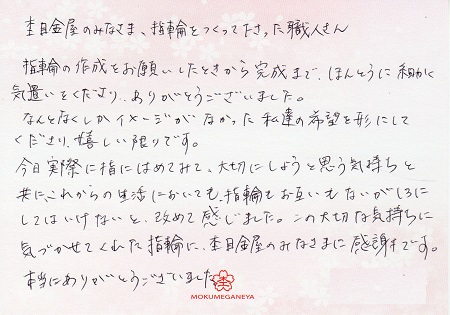 杢目金屋のみなさま、指輪をつくって下さった職人さん
指輪の作成をお願いしたときから完成まで、ほんとうに細かく
気遣いをくださり、ありがとうございました。
なんとなくしかイメージがなかった私達の希望を形にして
くださり、嬉しい限りです。
今日実際に指にはめてみて、大切にしようと思う気持ちと
共に、これからの生活においても、指輪もお互いもないがしろに
してはいけないと、改めて感じました。この大切な気持ちに
気づかせてくれた指輪に、杢目金屋のみなさまに感謝です。
本当にありがとうございました。
MOKUMEGANEYA